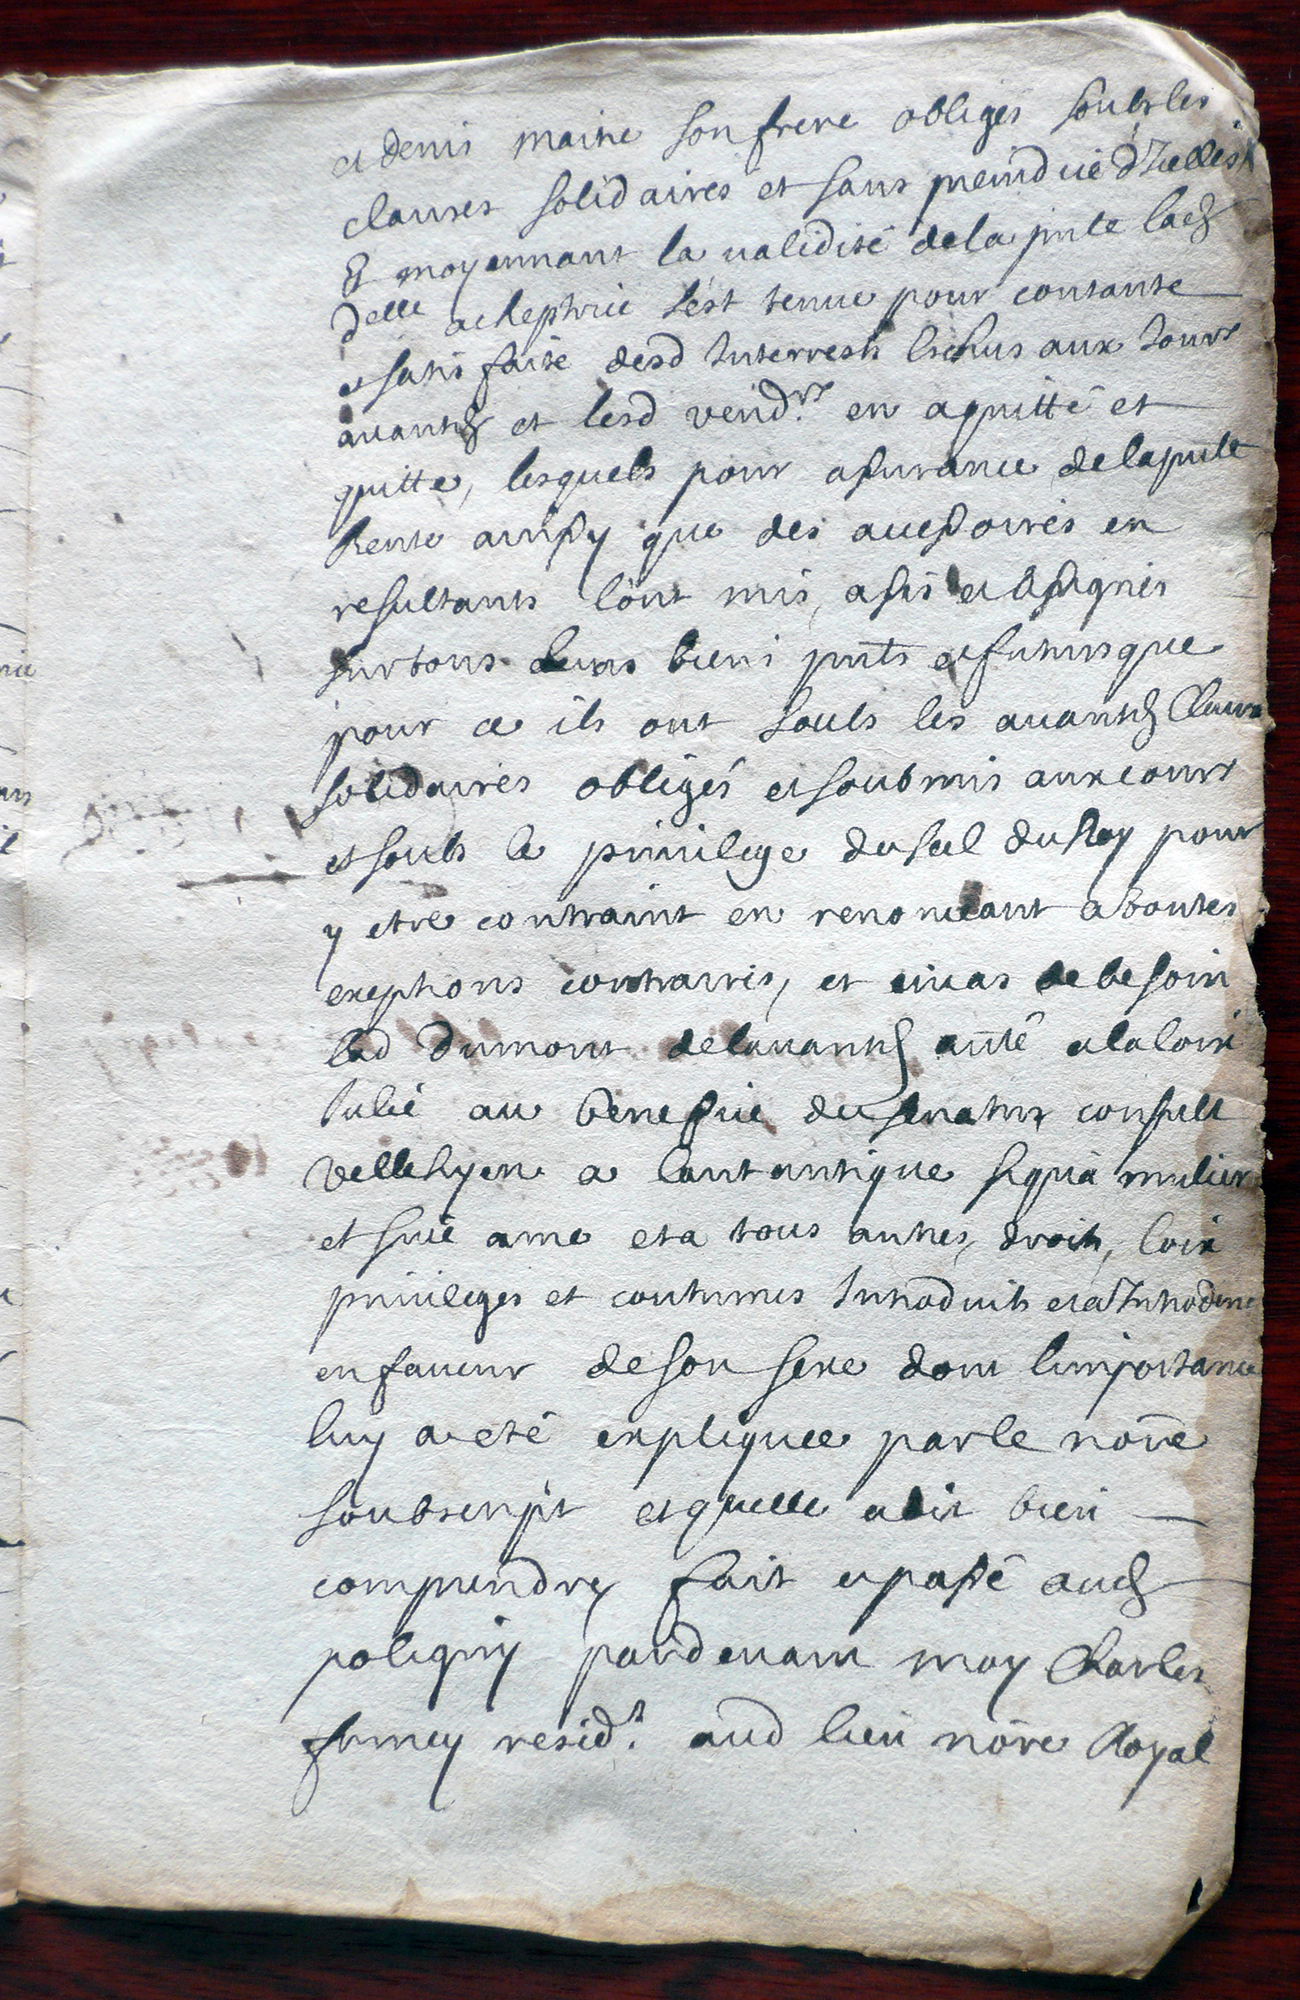 et denis maitre son frere obligés soubs les
clauses solidaires et sans preiudice d'Icelles
Et moyennant la validité de la pnte lad
Delle acheptrice s'est tenue pour contante
et satisfaite desd Interrests Escheus aux Jours
auantd et lesd vendrs en aquitté et
quitte, lesquels pour assurance de la pnte
Rente ainssy que des accessoires en
resultants l'ont mis, assis et assignés
sur tous leurs biens pnts et futurs que
pour ce ils ont soubs les auantd Clauses
solidaires obligés et soubmis aux cours
et soubs le priuilege du scel du Roy pour
y etre contraint en renonceant a toutes
exeptions contraires, et en cas de besoin
lad Dumont de lauantd auté a la loix
Julie au benefice du senatus consult
Velleyen a lautantique siqua mulier
et sur ame et a tous autres, droits, loix
priuileges et coutumes Introduits et a Introduire
en faueur de son sexe dont limportance
luy a eté expliquée par le nore
soubscript et quelle a dit bien
comprendre, fait et passé aud
poligny pardeuant moy Charles
fumey residt. aud lieu nore Royal